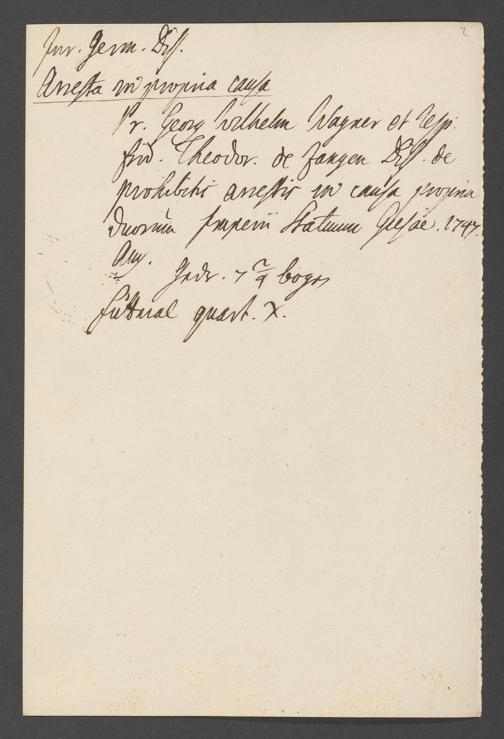 2
Jur. Germ. Diss.
Arresta in propria causa
Pr. Georg Wilhelm Wagner et Resp.
Frid. Theodor. de Zangen Diss. de
prohibitis arrestis in causa propria
duorum Imperii Statuum Giesae. 1747.
Gedr. 7 bogen
Futteral quart. X.